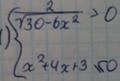 1) { 2/√(30-6x²) > 0
x²+4x+3 ≤ 0